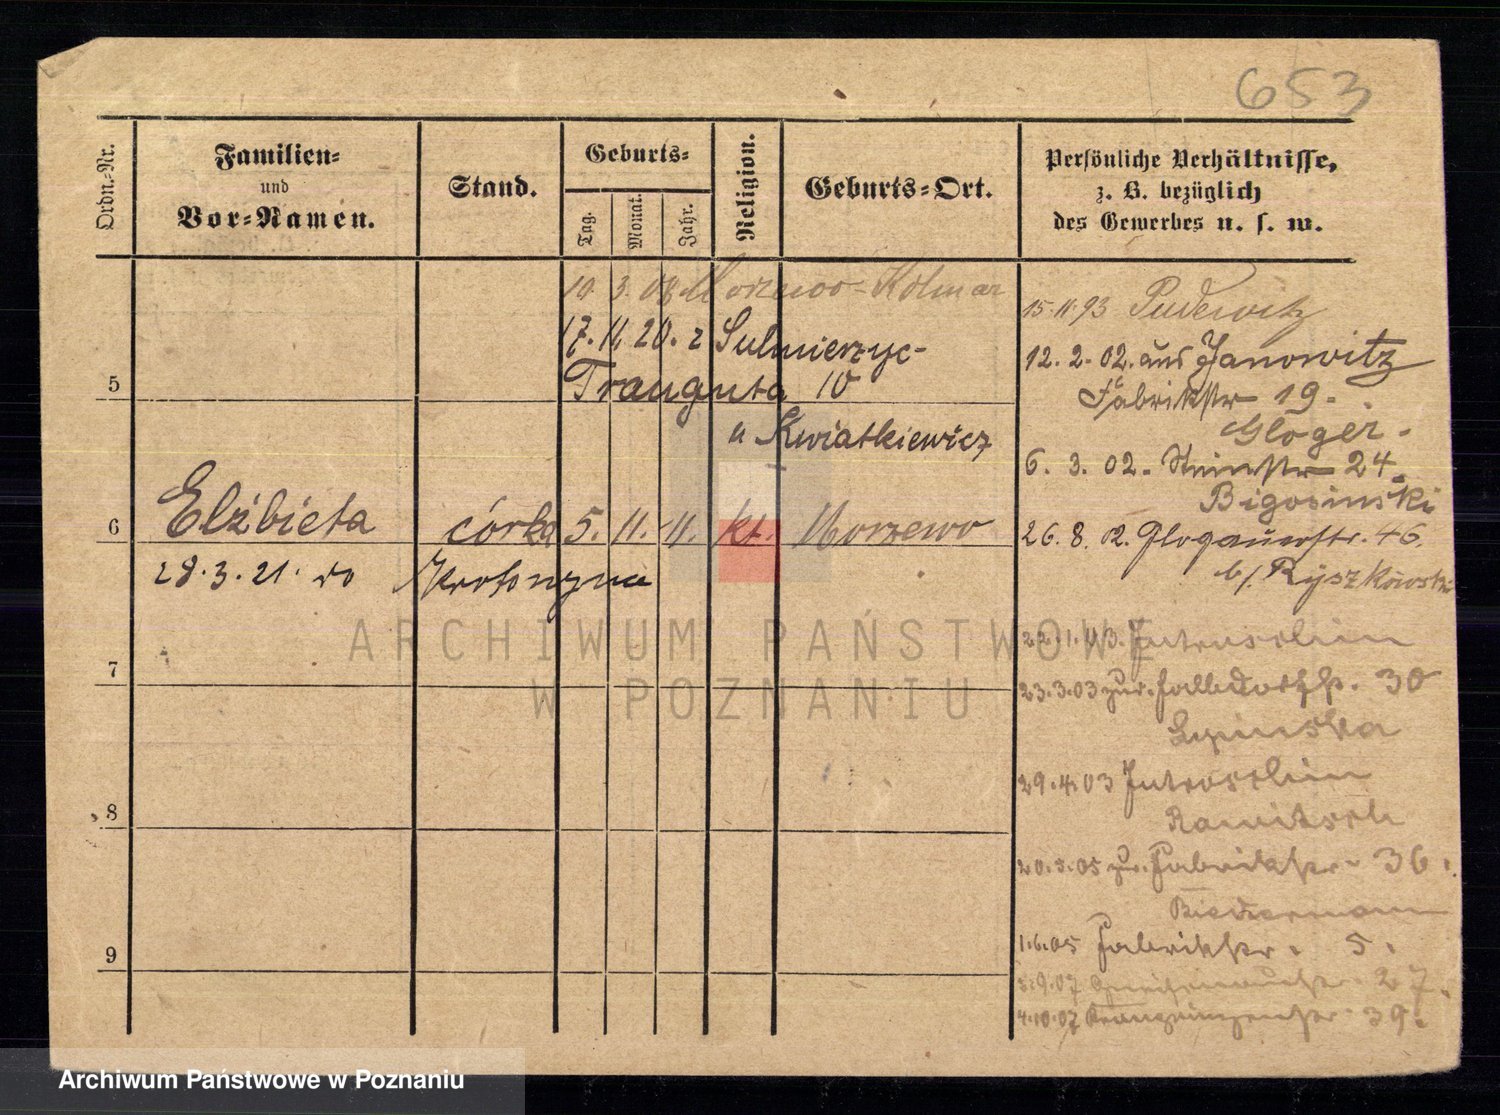 653
Ordn.-Nr.
Familien-
und
Vor-Namen.
Stand.
Geburts-
Tag.
Monat.
Jahr.
Religion.
Geburts-Ort.
Persönliche Verhältnisse,
z. B. bezüglich
des Gewerbes u. s. w.
19. 3. 08 Morzewo-Kolmar
17. 11. 20. z Sulmierzyc-
5 Trauguta 10
u Kwiatkiewicz
6 Elżbieta córka 5. 11. 11. kt. Morzewo
28. 3. 21. do Krotoszyna
7
8
9
15. 11. 93 Pudewitz
12. 2. 02. aus Janowitz
Fabrikstr 19.
Gloger.
6. 3. 02. 24.
Bigosinski
26. 8. 12. Glogauerstr. 46.
b/. Ryszkowski
23. 3. 03 zur. 30
Lipinska
29. 4. 03 Jutroschin
Rawitsch
20. 5. 05 zur. Fabrikstr. 36.
Biedermann
1. 6. 05 Fabrikstr. 5.
5. 9. 07 Gneisenaustr. 27.
4. 10. 07 39.
ARCHIWUM PAŃSTWOWE
W POZNANIU
Archiwum Państwowe w Poznaniu